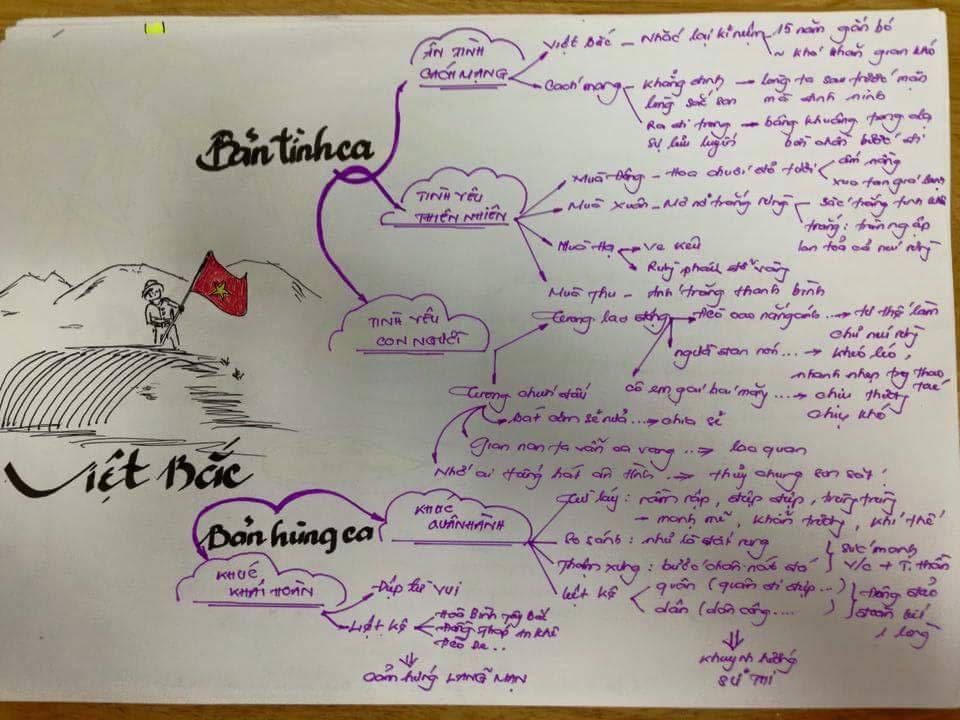 Bản tình ca
ÂN TÌNH
CÁCH MẠNG
Việt Bắc – Nhắc lại kỉ niệm
15 năm gắn bó
~ khó khăn gian khó
Cách mạng
khẳng định → lòng ta sau trước mặn
lòng sắc son mà đinh ninh
Ra đi trong → bâng khuâng trong dạ
sự lưu luyến bồn chồn bước đi
TÌNH YÊU
THIÊN NHIÊN
Mùa Đông – Hoa chuối đỏ tươi
ấm nóng
xua tan giá lạnh
Mùa Xuân – Mơ nở trắng rừng
sắc trắng tinh khôi
trắng: tràn ngập
lan toả cả núi rừng
Mùa Hạ
Ve kêu
Rừng phách đổ vàng
Mùa Thu – Ánh trăng thanh bình
TÌNH YÊU
CON NGƯỜI
Trong lao động
Đèo cao nắng ánh... → tư thế làm
chủ núi rừng
người đan nón... → khéo léo,
nhanh nhẹn trg thao tác
cô em gái hái măng... → chịu thương
chịu khó
Trong chiến đấu
Bát cơm sẻ nửa... → chia sẻ
Gian nan ta vẫn ca vang... → lạc quan
Nhớ ai tiếng hát ân tình... → thuỷ chung son sắt!
Việt Bắc
Bản hùng ca
KHÚC
QUÂN HÀNH
Từ láy: rầm rập, điệp điệp, trùng trùng
→ mạnh mẽ, khẩn trương, khí thế
So sánh: như là đất rung
Thậm xưng: bước chân nát đá
sức mạnh
V/c + T. thần
Liệt kê
quân (quân đi điệp...)
dân (dân công....)
đông đảo
đoàn kết
1 lòng
Khuynh hướng
SỬ THI
KHÚC
KHẢI HOÀN
Điệp từ vui
Liệt kê
Hoà Bình Tây Bắc
Đồng Tháp An Khê
Đèo De..
Cảm hứng LÃNG MẠN